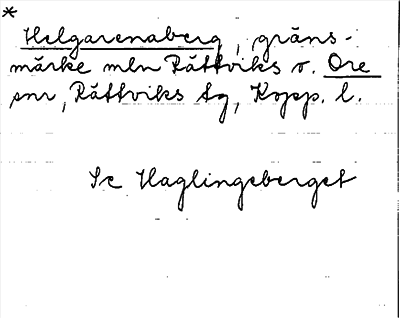 *
Helgarenaberg, gräns-
märke mln Rättviks o. Ore
snr, Rättviks tg, Kopp. l.
Se Haglingsberget